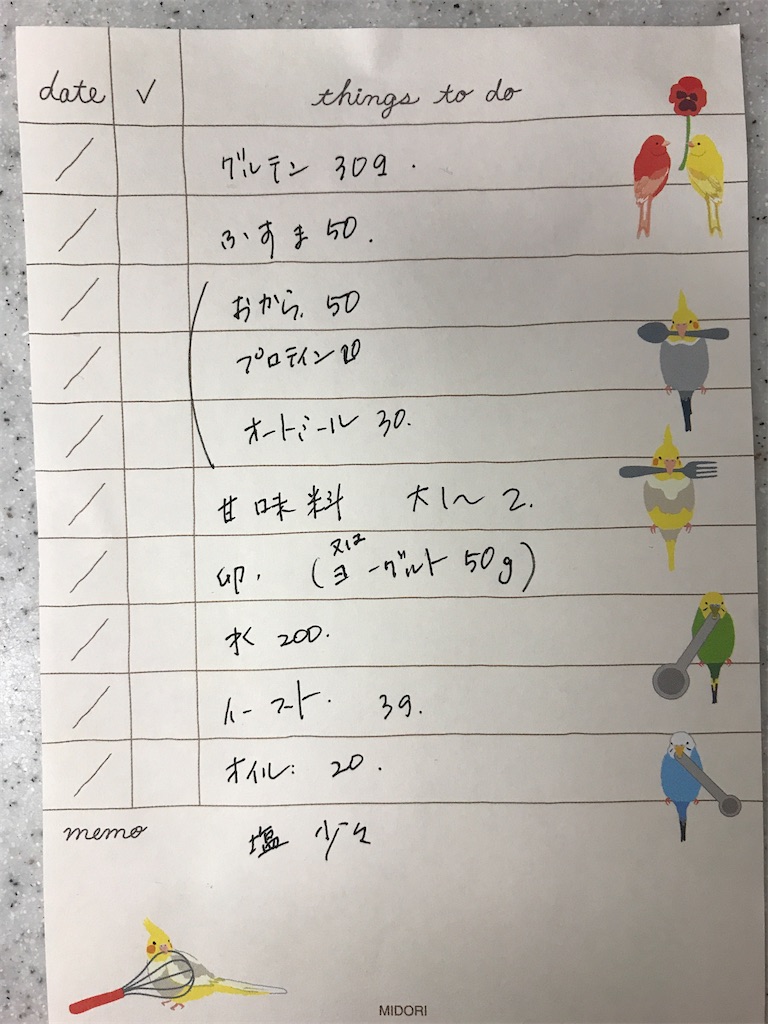 date ✓ things to do
グルテン 30g.
ふすま 50.
おから, 50
プロテイン
オートミール 30.
甘味料 大1〜2.
卵. (又はヨーグルト 50g)
水 200.
イースート. 3g.
オイル: 20.
memo 塩 少々
MIDORI